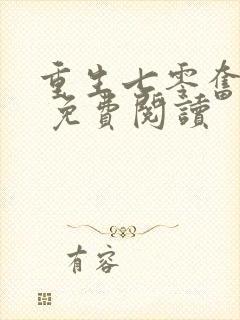 重生七零奮
免費閱讀
有容